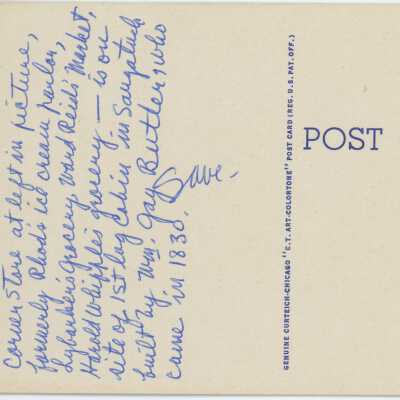 Corner Store at left in picture,
formerly Rhode's ice cream parlor,
Sybanker's Grocery, Ward Reid's Market,
Harold Whipple's grocery — is on
site of 1st log Cabin in Saugatuck
built by Wm. Gay Butler, who
came in 1830.
Dave.
GENUINE CURTEICH-CHICAGO "C.T. ART-COLORTONE" POST CARD (REG. U.S. PAT. OFF.)
POST